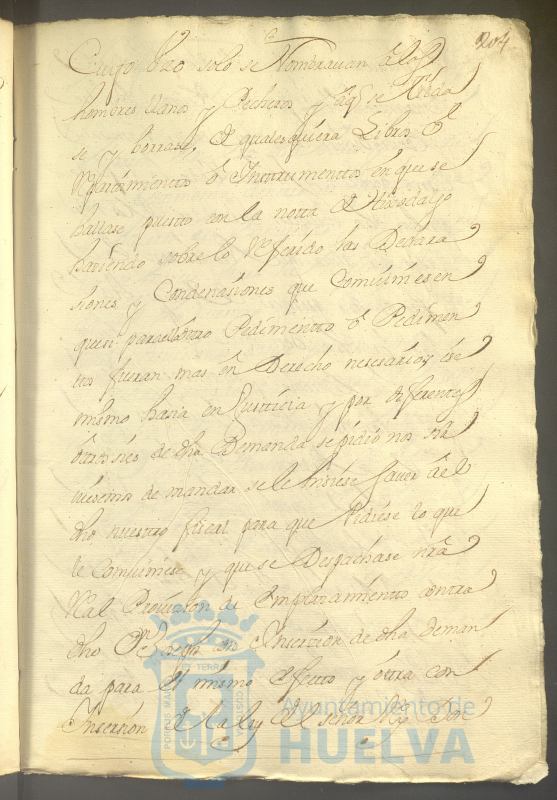 204
Cuyo Uso solo se Nombravan a los
hombres llanos y Pecheros y que se tilda
se y borrase, de qualesquiera Libros o
Repartimientos o Instrumentos en que se
hallase puesto con la notta de Hixodalgo
haciendo sobre lo Referido las Declara
siones y Condenasiones que Combiniesen
que para ello Pedimento o Pedimen
tos fueran mas en Derecho nesesarios y
mismo hasia en Justticia y por diferentes
ottrosies de dha Demanda se pidio nos sir
viesemos de mandar se le hisiese saver a el
dho nuestro fiscal para que Pidiese lo que
le combiniese y que se Despachase nra
Real Provission de emplasamiento contra
dho Dn Joseph con Insersion de dha deman
da para el mismo efectto y ottra con
Insersion de la ley del señor Rey Don
PORTUS MARIS ET TERRAE CUSTODIA
Ayuntamiento de
HUELVA